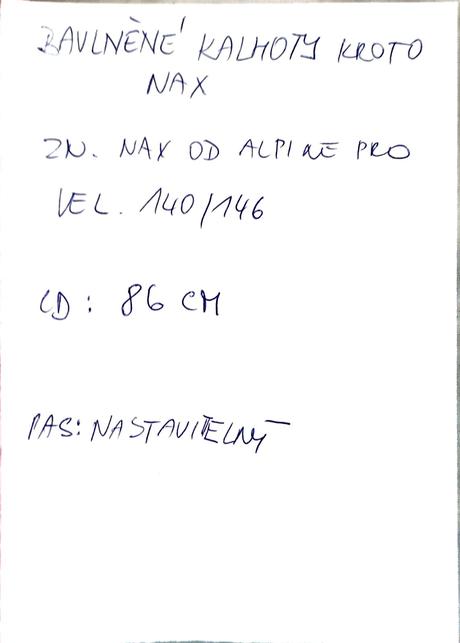 BAVLNĚNÉ KALHOTY KROTO
NAX
ZN. NAX OD ALPINE PRO
VEL. 140/146
CD: 86 CM
PAS: NASTAVITELNÝ